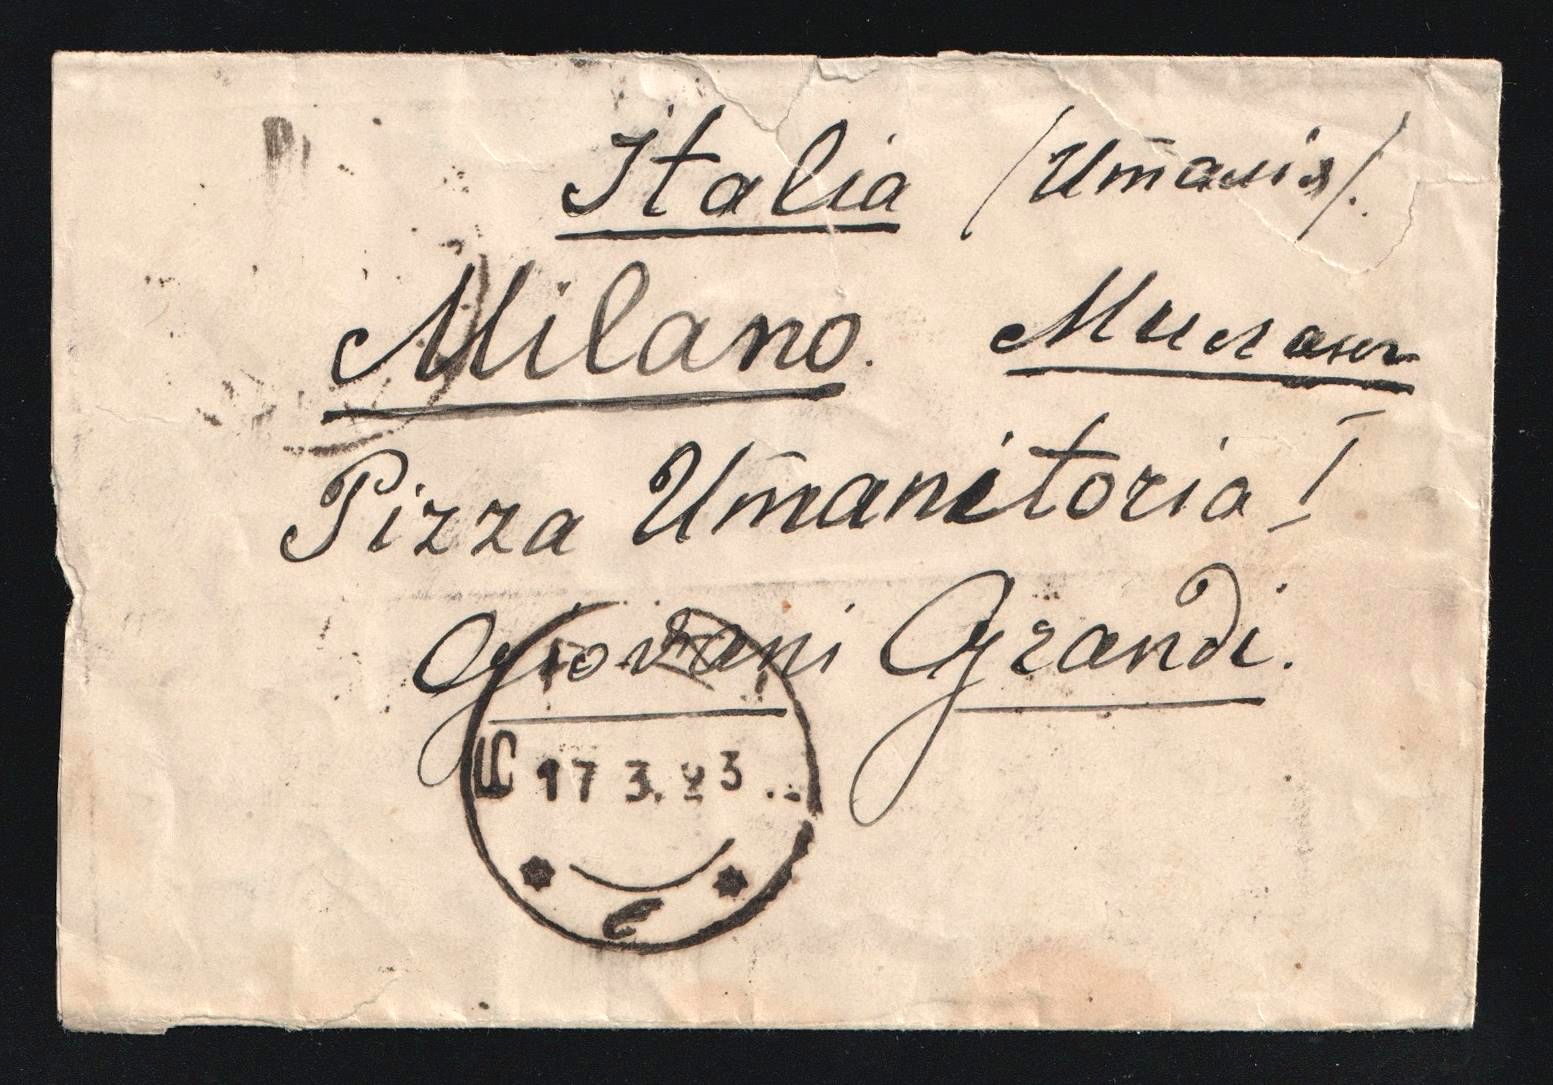 Italia /Италія/.
Milano. Миланъ
Pizza Umanitoria I
Giovani Grandi.
17 3. 23
е